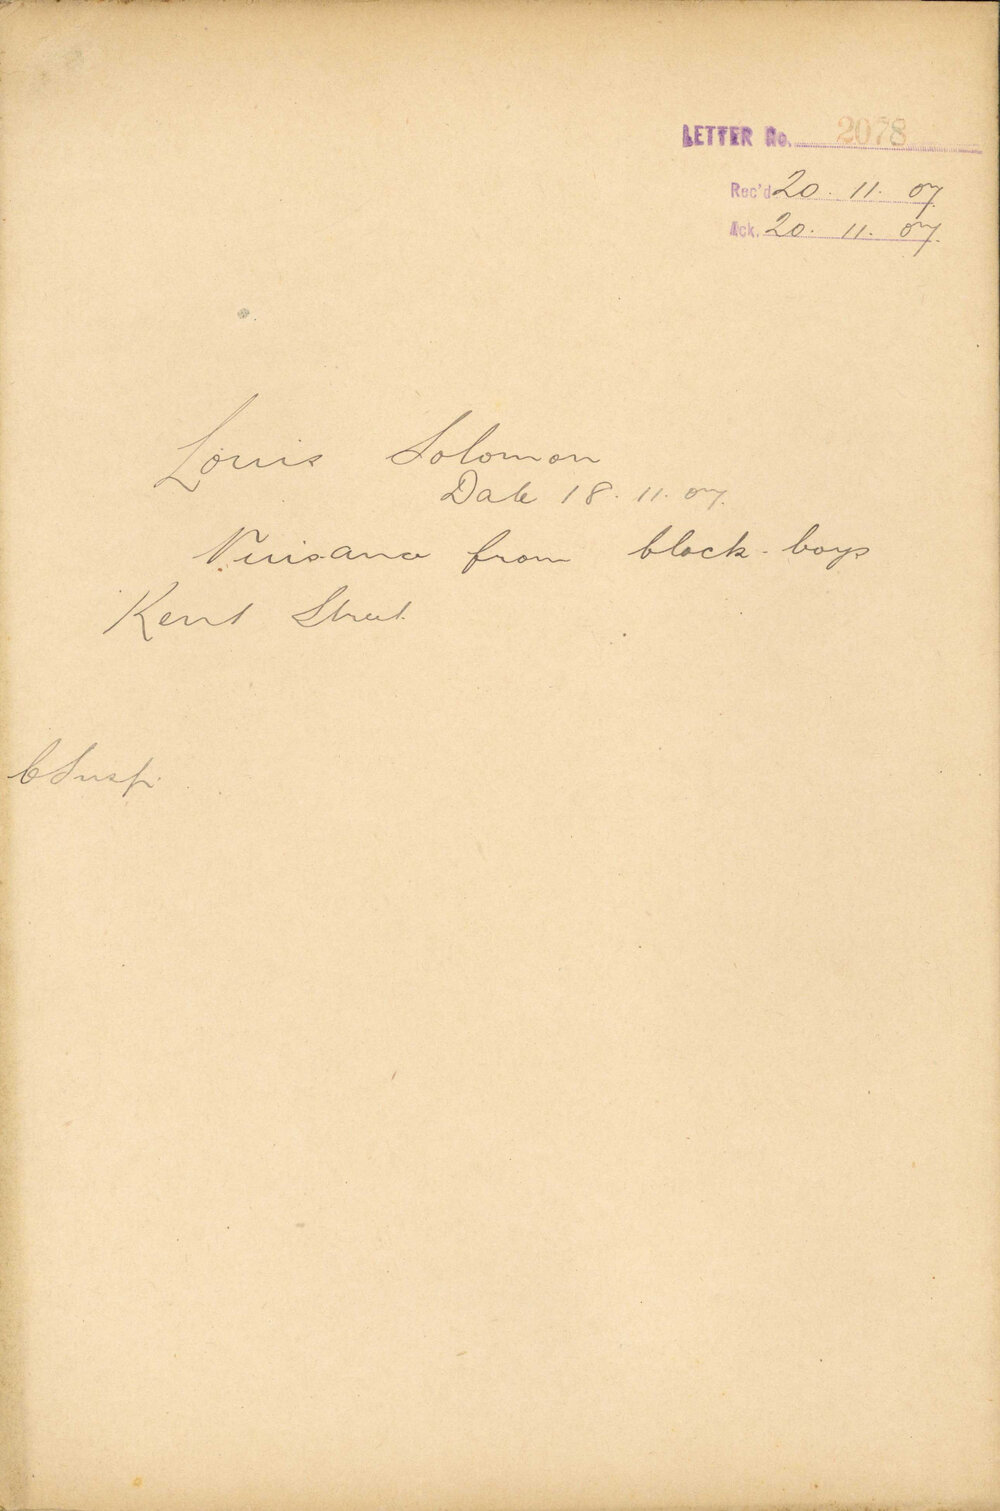 LETTER No. 2078
Rec'd 20. 11. 07
Ack. 20. 11. 07.
Louis Solomon
Date 18. 11. 07.
Nuisance from block-boys
Kent Street
C Insp.